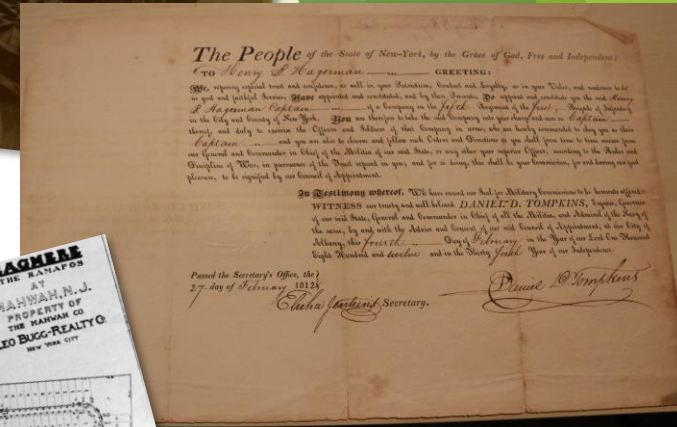 The People of the State of New-York, by the Grace of God, Free and Independent:
TO Henry Hagerman GREETING:
We, reposing especial trust and confidence, as well in your Patriotism, Conduct and Loyalty, as in your Valor, and readiness to do
us good and faithful Service; Have appointed and constituted, and by these Presents, Do appoint and constitute you the said Henry
Hagerman Captain of a Company in the fifth Regiment of the first Brigade of Infantry
in the City and County of New York. You are therefore to take the said Company into your charge and care as Captain
thereof, and duty to exercise the Officers and Soldiers of that Company in arms, who are hereby commanded to obey you as their
Captain and you are also to observe and follow such Orders and Directions as you shall from time to time receive from
our General and Commander in Chief of the Militia of our said State, or any other your superior Officer, according to the Rules and
Discipline of War, in pursuance of the Trust reposed in you; and for so doing, this shall be your Commission, for and during our good
pleasure, to be signified by our Council of Appointment.
In Testimony whereof, We have caused our Seal for Military Commissions to be hereunto affixed:
WITNESS our trusty and well-beloved DANIEL D. TOMPKINS, Esquire, Governor
of our said State, General and Commander in Chief of all the Militia, and Admiral of the Navy of
the same, by and with the Advice and Consent of our said Council of Appointment, at our City of
Albany, the fourth Day of February in the Year of our Lord One Thousand
Eight Hundred and twelve and in the Thirty Sixth Year of our Independence.
Passed the Secretary's Office, the
27 day of February 1812
Elisha Jenkins Secretary.
Daniel D. Tompkins
THE RAMAPOS
AT
MAHWAH, N.J.
PROPERTY OF
THE MAHWAH CO.
LEO BUGG-REALTY Co
NEW YORK CITY